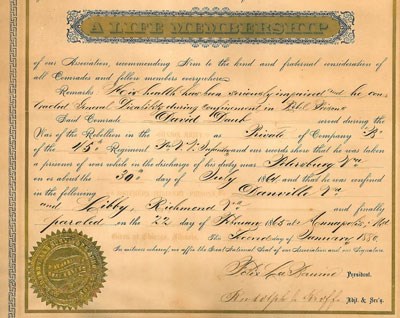 A LIFE MEMBERSHIP
of our Association, recommending him to the kind and fraternal consideration of all
Comrades and fellow members everywhere.
Remarks His health has been seriously impaired and he con-
tracted General Disability during confinement in Rebel Prisons
Said Comrade David served during the
War of the Rebellion in the as Private of Company "B"
of the 45th Regiment P. V. V. Infantry and our records show that he was taken
a prisoner of war while in the discharge of his duty near Petersburg Va
on or about the 30th day of July 1864 and that he was confined
in the following Danville Va
and Libby, Richmond Va and finally
paroled on the 22 day of February 1865 at Annapolis, Md
This Second day of January 1880.
In witness whereof, we affix the Great Fraternal Seal of our Association and our Signatures
President.
Rudolph Adjt. & Sec'y.